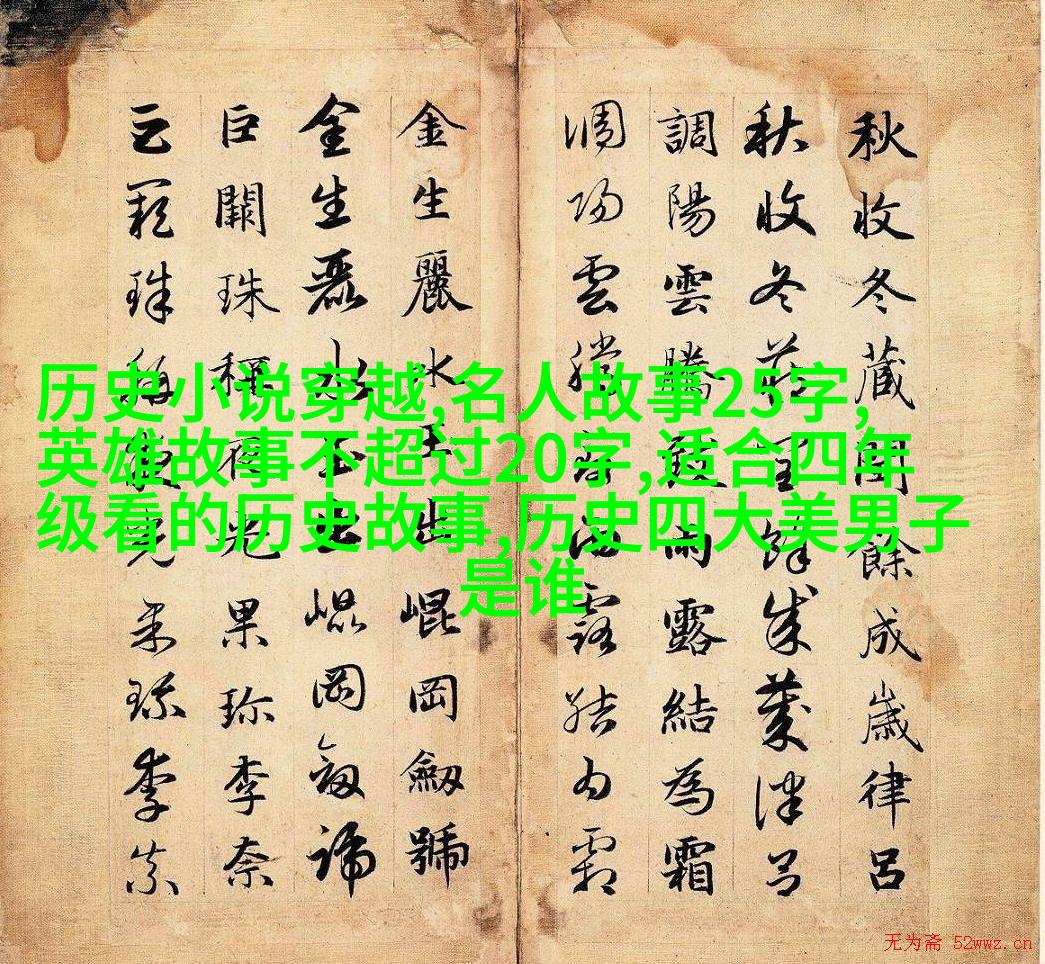 秋收冬藏閏餘成歲律呂
秋收冬藏閏餘成歲律呂
調陽雲騰致雨露結為霜
調陽雲騰致雨露結為霜
金生麗水玉出崐岡劔號
金生麗水玉出崐岡劔號
巨闕珠稱夜光果珍李柰
巨闕珠稱夜光果珍李柰
历史小说穿越,名人故事25字,
英雄故事不超过20字,适合四年
级看的历史故事,历史四大美男子
是谁
无为斋 52wwz.cn